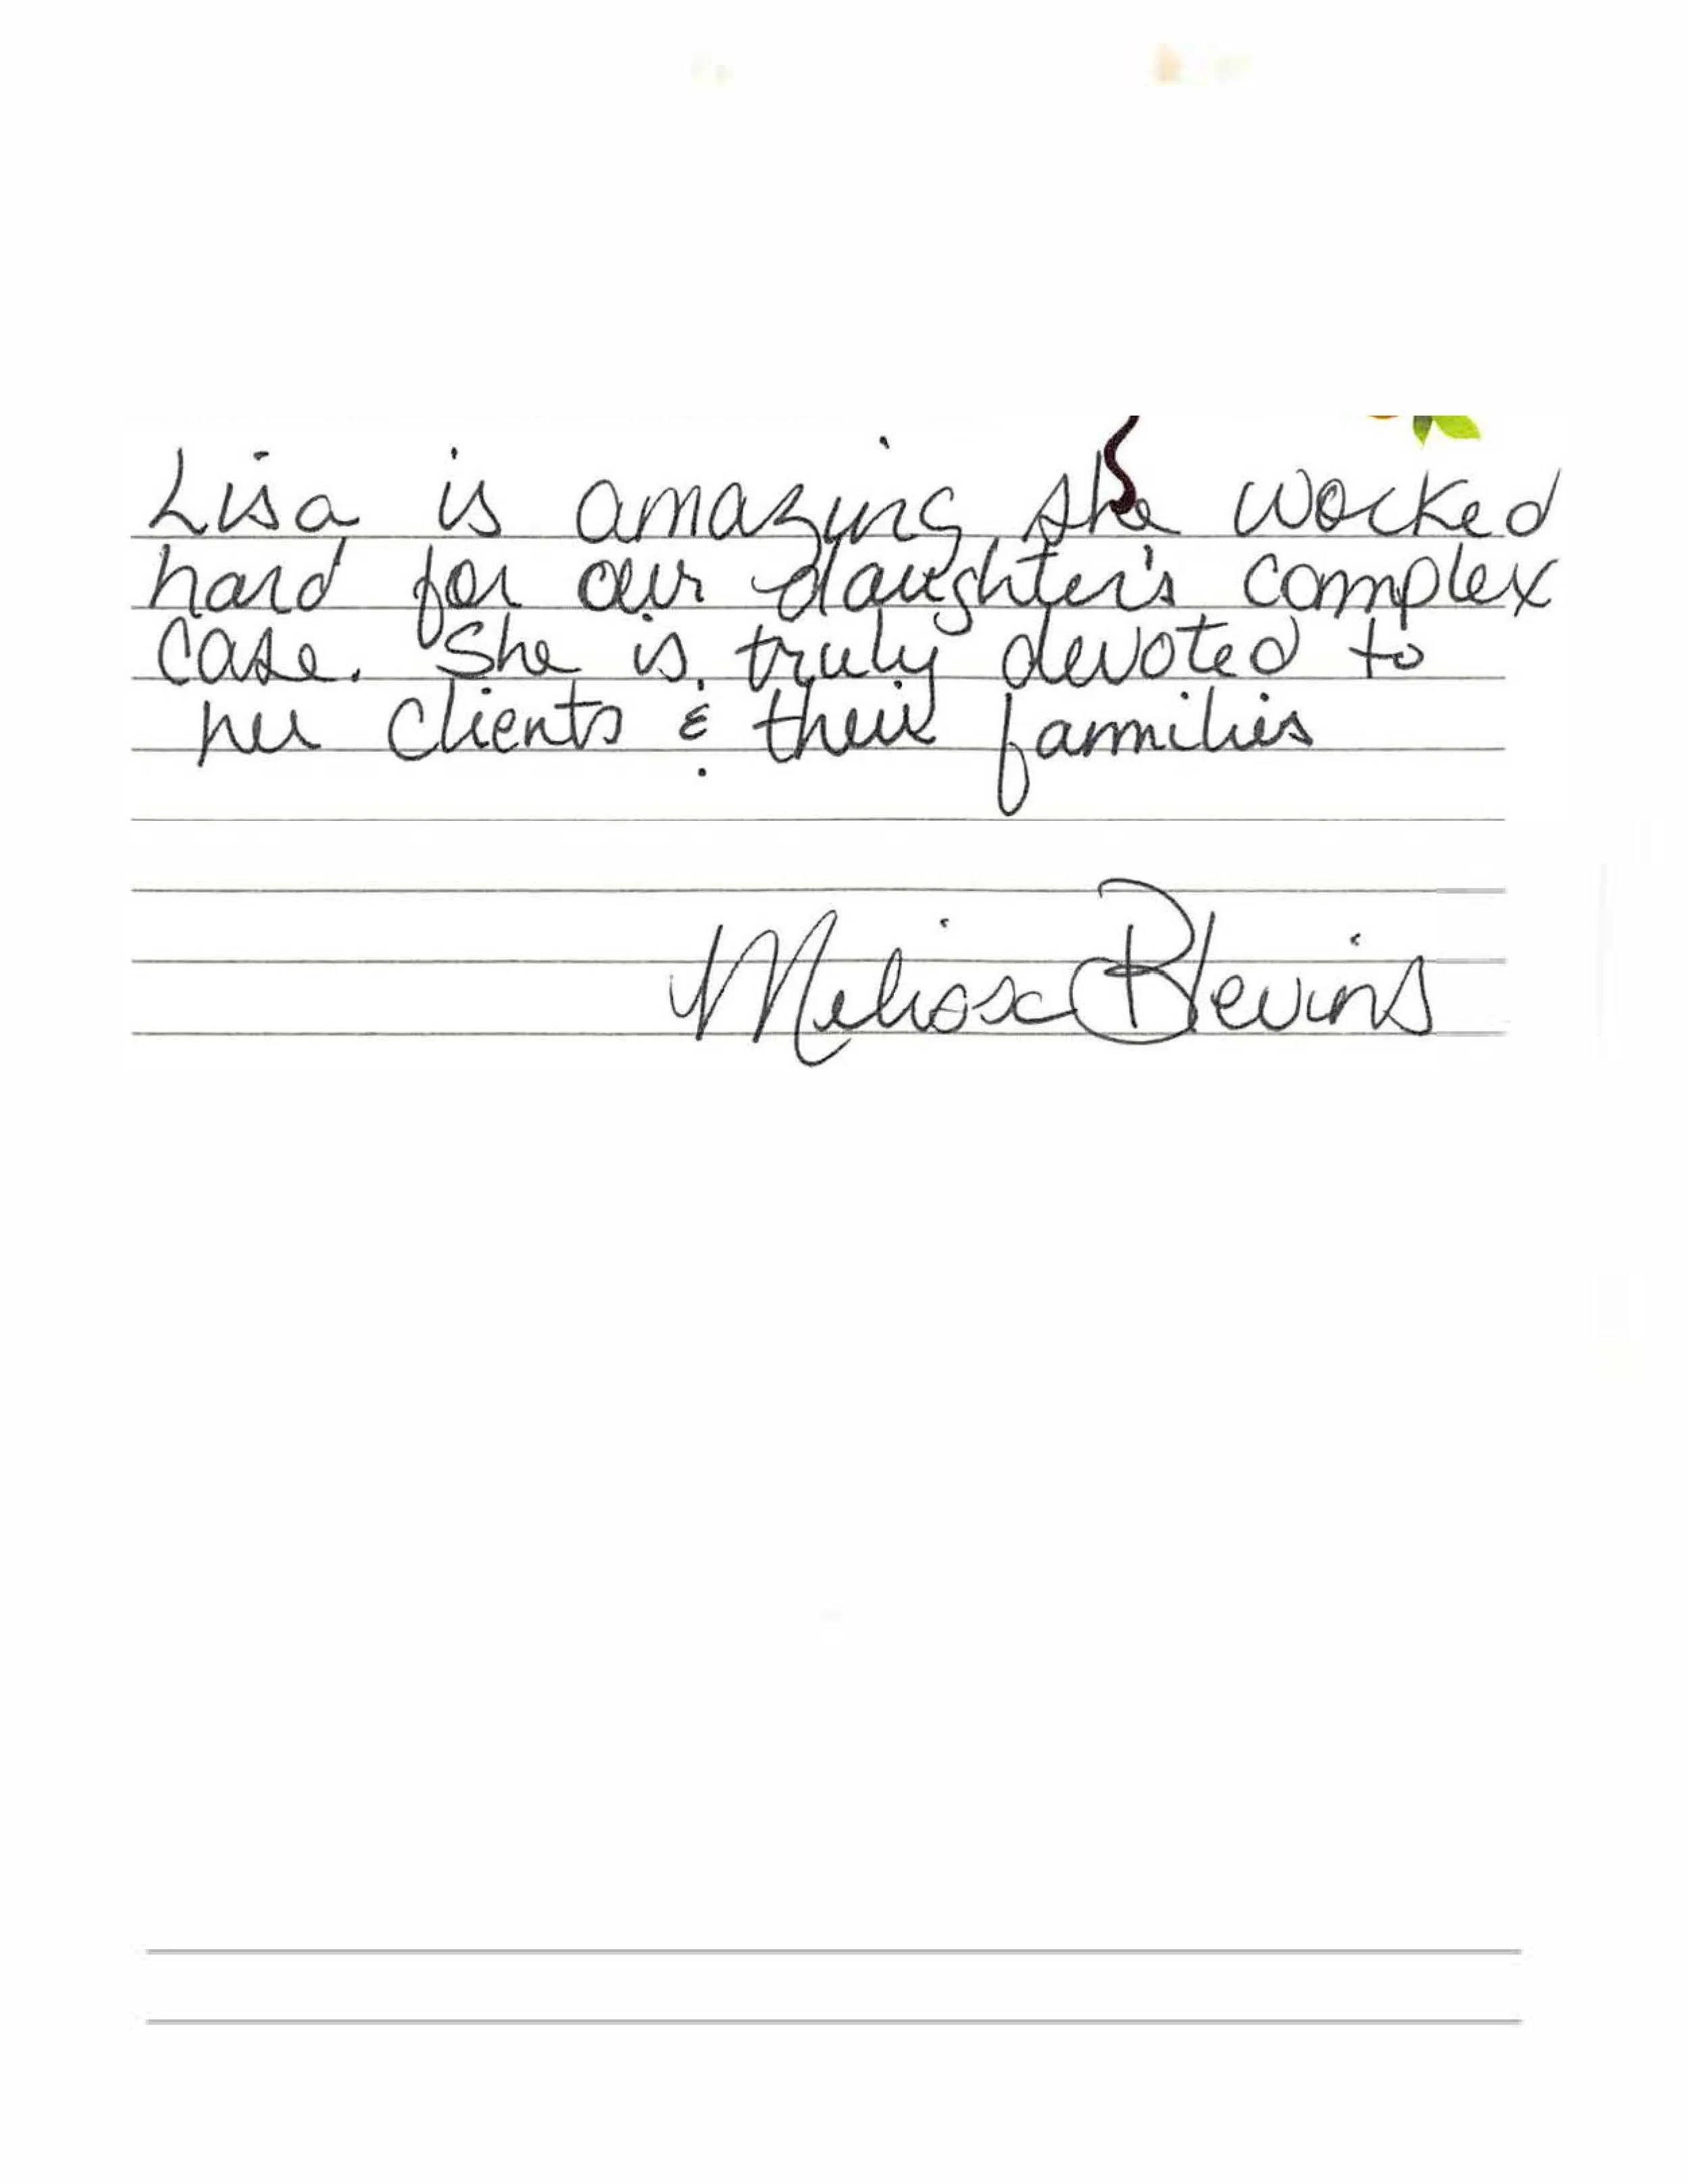 Lisa is amazing, she worked
hard for our daughter's complex
case. She is truly devoted to
her clients & their families
Melissa Blevins